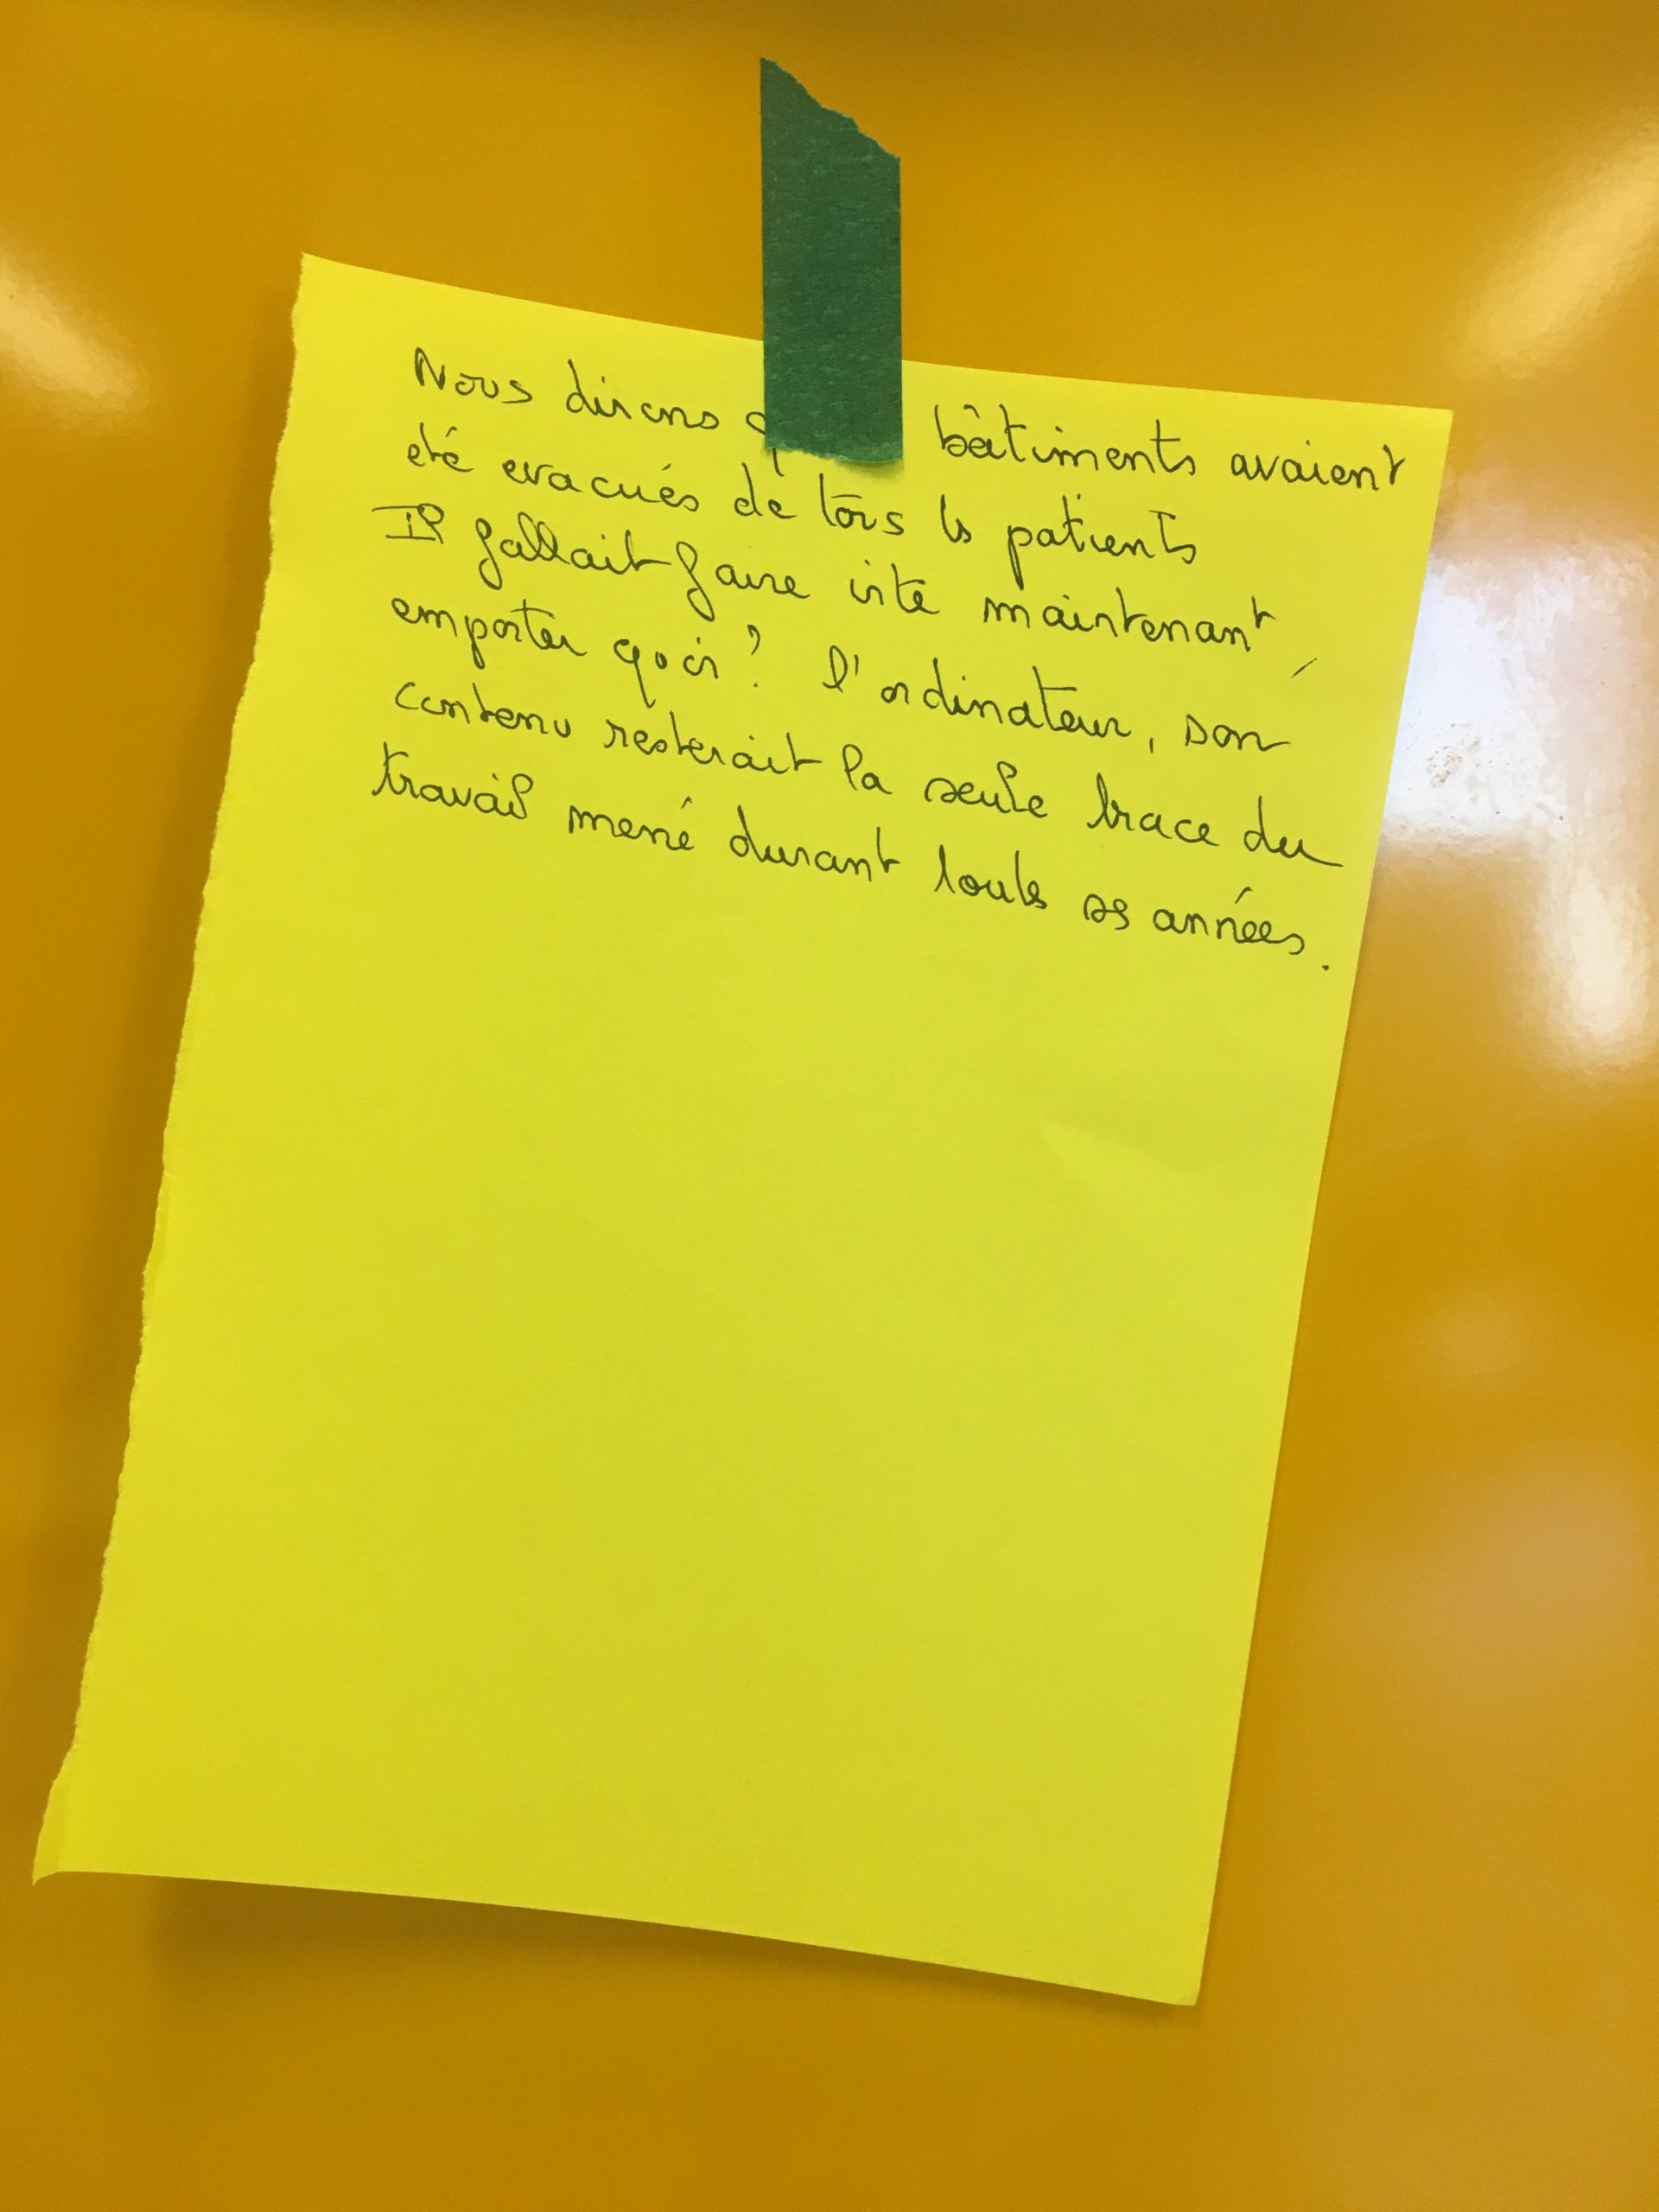 Nous dirons q bâtiments avaient
été evacués de tous ls patients
Il fallait faire vite maintenant,
emporter quoi ? l'ordinateur, son
contenu resterait la seule trace du
travail mené durant toutes ses années.